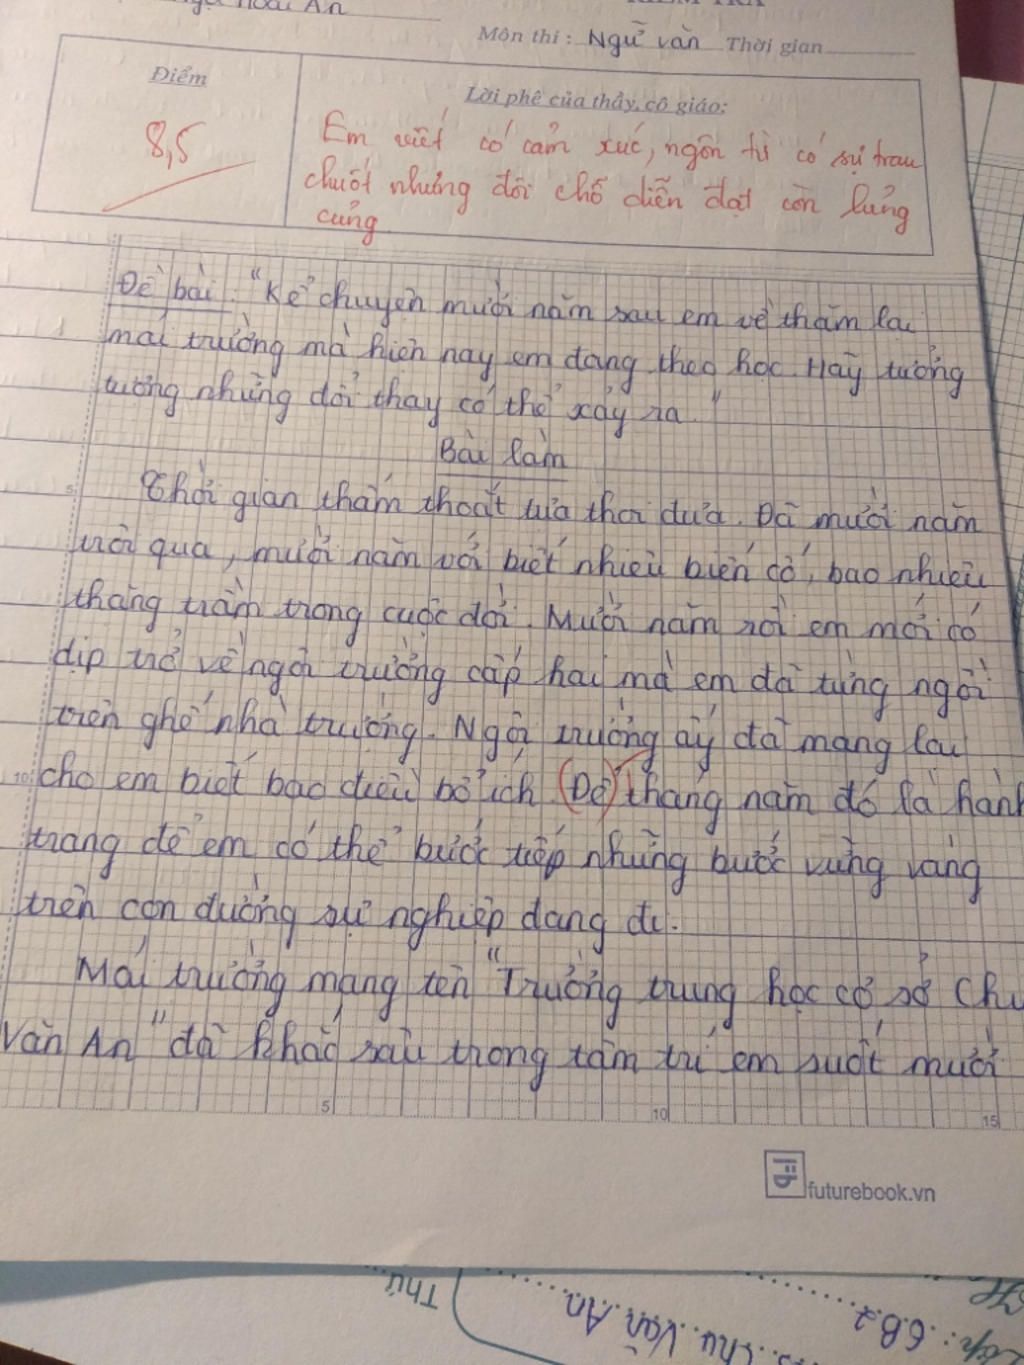 Hoài An
KIỂM TRA
Môn thi: Ngữ văn Thời gian
Điểm
Lời phê của thầy, cô giáo:
8,5
Em viết có cảm xúc, ngôn từ có sự trau
chuốt nhưng đôi chỗ diễn đạt còn lủng
củng
Đề bài: "Kể chuyện mười năm sau em về thăm lại
mái trường mà hiện nay em đang theo học. Hãy tưởng
tượng những đổi thay có thể xảy ra."
Bài làm
5
Thời gian thấm thoắt tựa thoi đưa. Đã mười năm
trôi qua, mười năm với biết nhiêu biến cố, bao nhiêu
thăng trầm trong cuộc đời. Mười năm rồi em mới có
dịp trở về ngôi trường cấp hai mà em đã từng ngồi
trên ghế nhà trường. Ngôi trường ấy đã mang lại
10
cho em biết bao điều bổ ích. (Để) tháng năm đó là hành
trang để em có thể bước tiếp những bước vững vàng
trên con đường sự nghiệp đang đi.
Mái trường mang tên "Trường trung học cơ sở Chu
Văn An" đã khắc sâu trong tâm trí em suốt mười
5 10 15
futurebook.vn
Thứ
Chu Văn An
Lớp: 6B2